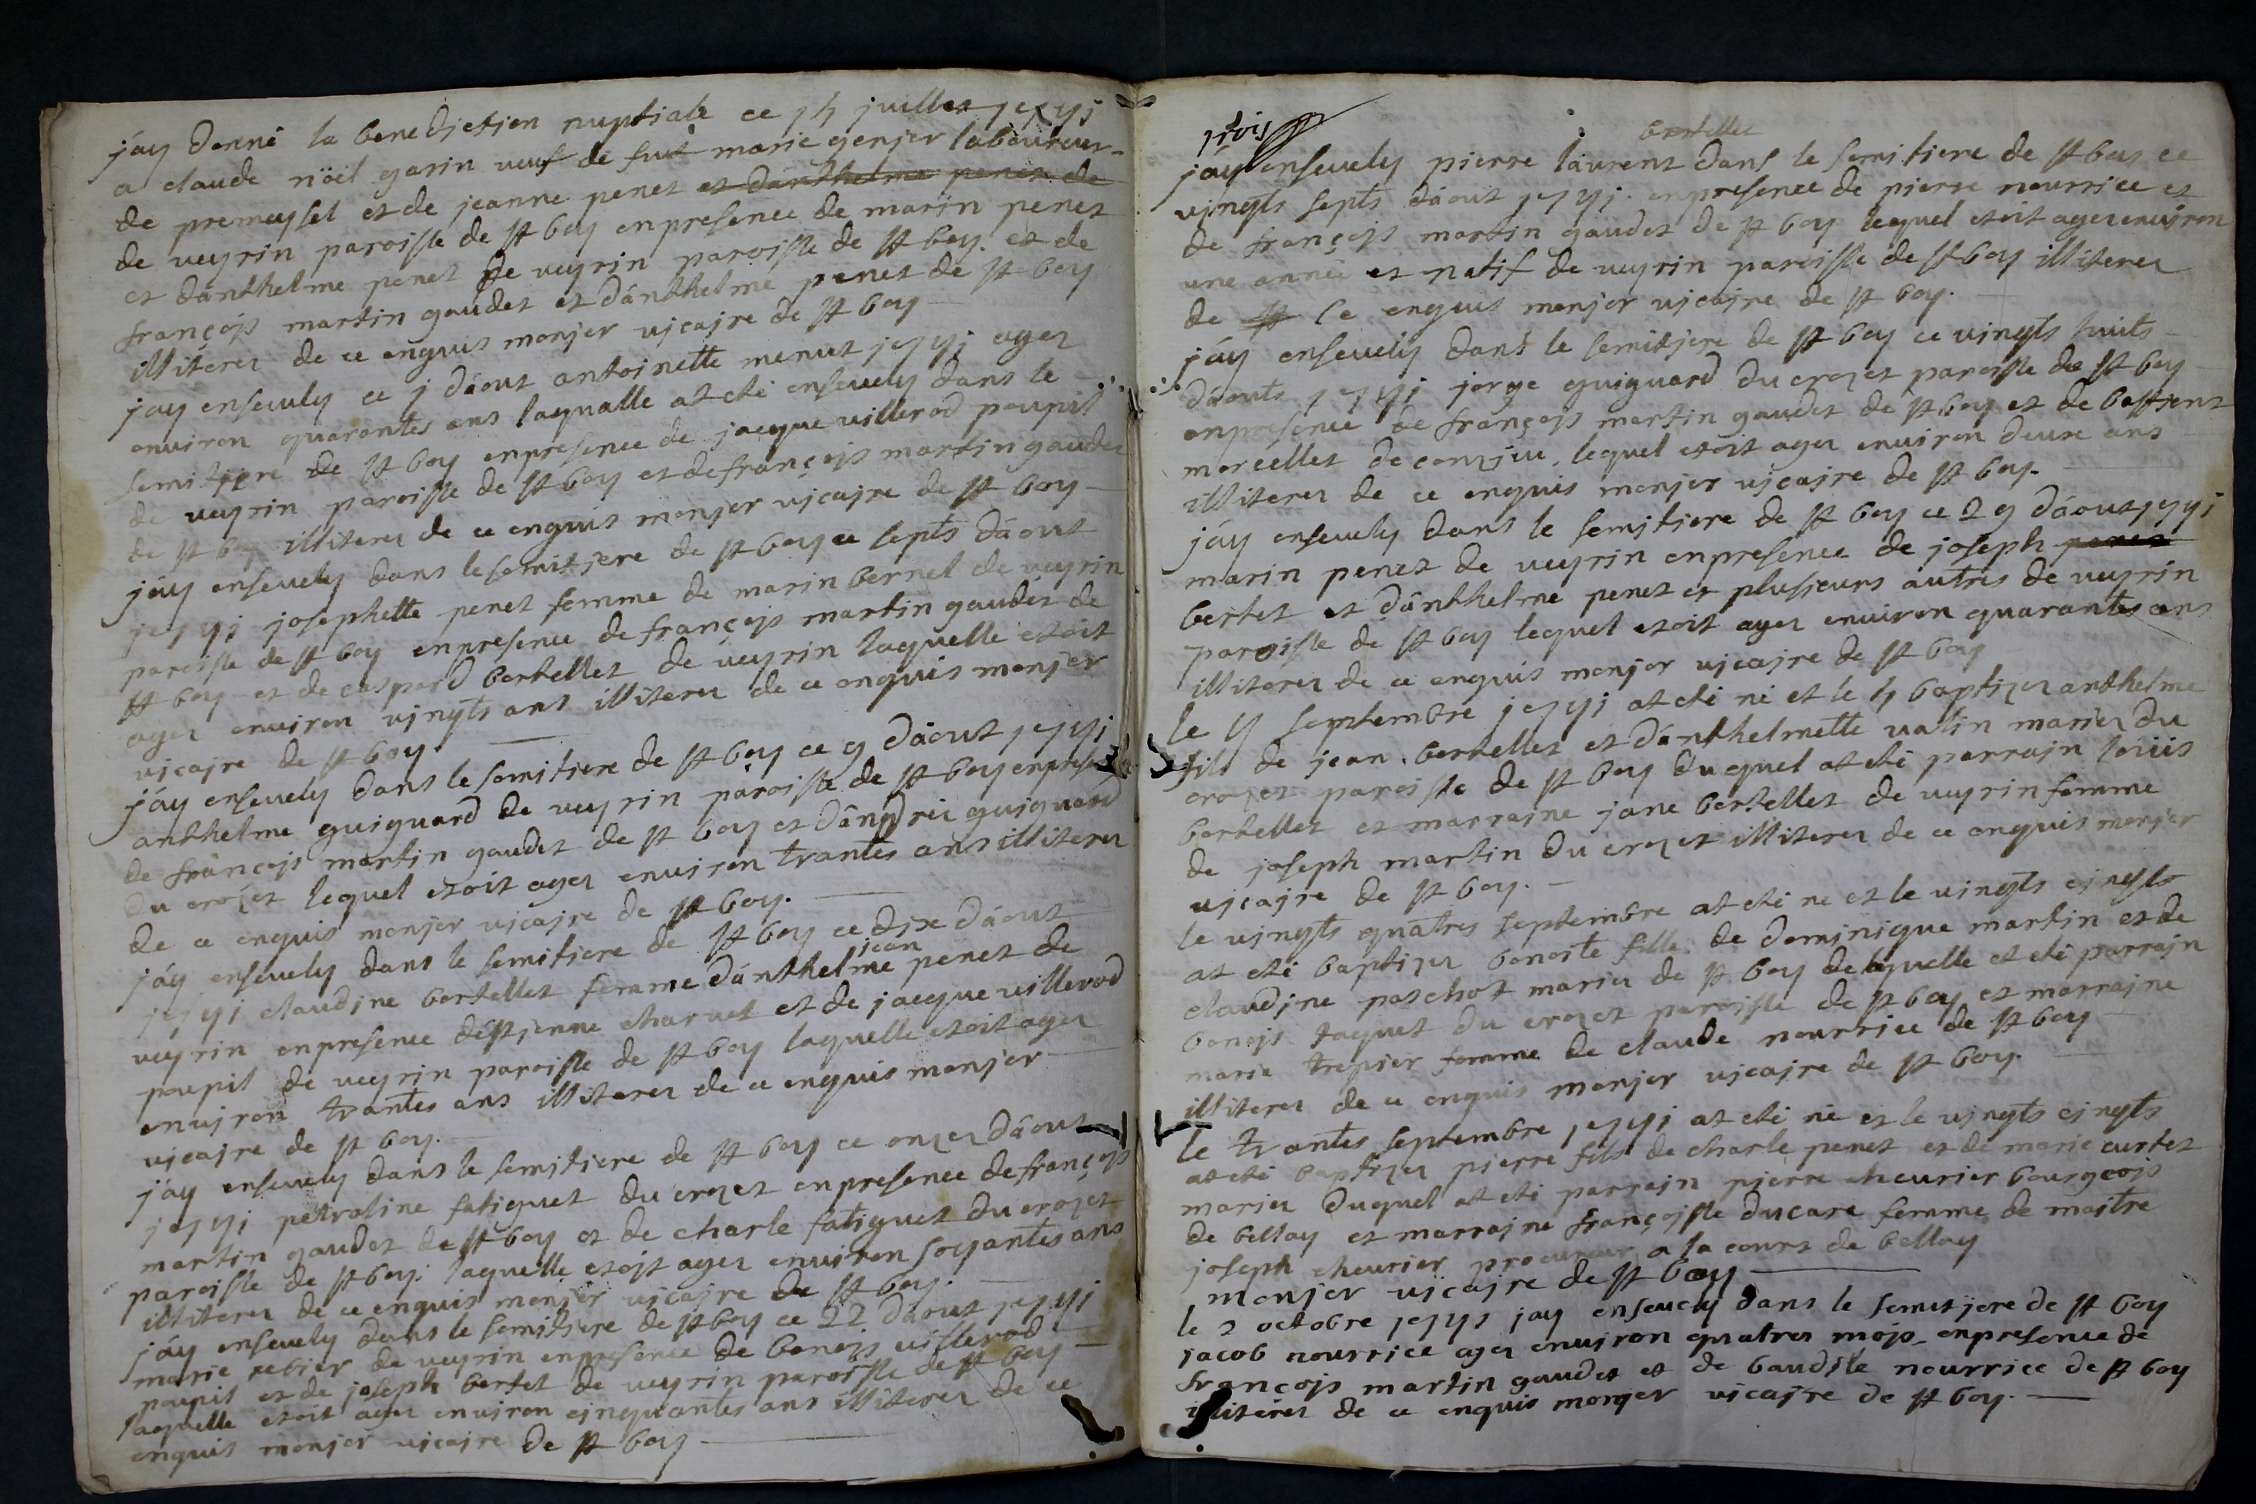 jáy donné la benedjctjon nuptiale ce 14 juillet
a claude nöel garin veuf de fut marie genjer laboureur
de premeysel et de jeanne penet et dánthelme penet de
de veyrin paroisse de st boy enpresence de marin penet
et dánthelme penet de veyrin paroisse de st boy. et de
françojs martin gaudet et dánthelme penet de st boy
illiterez de ce enquis monjer vjcajre de st boy
jáy ensevely ce j dáout antojnette menuet agez
environ quarantes ans laqualle at eté ensevely dans le
semitiere de st boy enpresence de jacque villerod poupil
de veyrin paroisse de st boy et de françojs martin gaudet
de st boy illiterez de ce enquis monjer vjcajre de st boy
jáy ensevely dans le semitjere de st boy ce septs dáout
josephette penet femme de marin bernel de veyrin
paroisse de st boy enpresence de françojs martin gaudet de
st boy et de caspard bertellet de veyrin laquelle etoit
agez environ vjngts ans illiterez de ce enquis monjer
vjcajre de st boy.
jáy ensevely dans le semitiere de st boy ce 9 dáout
anthelme guiguard de veyrin paroisse de st boy enpresence
de françojs martin gaudet de st boy et dándrez guiguard
du crozet lequel etoit agez environ trantes ans illiterez
de ce enquis monjer vjcajre de st boy.
jáy ensevely dans le semitiere de st boy ce dix dáout
jean
claudjne bertellet femme dánthelme penet de
veyrin enpresence déstjenne charvet et de jacque villerod
poupil de veyrin paroisse de st boy laquelle etoit agez
envjron trantes ans illiterez de ce enquis monjer
vjcajre de st boy.
jáy ensevely dans le semjtiere de st boy ce onzez dáout
petroline fatiguet du crozet enpresence de françojs
martin gaudet de st boy et de charle fatiguet du crozet
paroisse de st boy. laquelle etojt agez environ soyantes ans
illiterez de ce enquis monjer vjcajre de st boy.
jáy ensevely dans le semitjere de st boy ce 22 dáout
marie rebier de veyrin enpresence de benojs villerod
poupil et de joseph bertet de veyrin paroisse de st boy
laquelle etoit agez environ cjnquantes ans illiterez de ce
enquis monjer vjcajre de st boy
bertellet
jáy ensevely pierre laurent dans le semitiere de st boy ce
vjngts septs dáout enpresence de pierre nourrice et
de françojs martin gaudet de st boy lequel etoit agez environ
une année et natif de veyrin paroisse de st boy illiterez
de st ce enquis monjer vjcajre de st boy.
jáy ensevely dans le semitjere de st boy ce vingts huits
dáouts jorge guiguard du crozet paroisse de st boy
enpresence de françojs martin gaudet de st boy et de bastient
morcellet de conzjeu. lequel etoit agez environ deuxe ans
illiterez de ce enquis monjer vjcajre de st boy.
jáy ensevely dans le semitiere de st boy ce 29 dáout
marin penet de veyrin enpresence de joseph penet
bertet et dánthelme penet et plusjeurs autres de veyrin
paroisse de st boy lequel etoit agez environ quarantes ans
illiterez de ce enquis monjer vjcajre de st boy
le septembre at eté né et le 4 baptizez anthelme
fils de jean. bertellet et dánthelmette vatin mariez du
crozet paroisse de st boy duquel at eté parrajn loüis
bertellet et marraine jane bertellet de veyrin femme
de joseph martin du crozet illiterez de ce enquis monjer
vjcajre de st boy.
le vingts quatres septembre at eté né et le vingts cjngts
at eté baptizez benoite fille de dominique martin et de
claudjne paschot mariez de st boy de laquelle at eté parrajn
benojs jaquet du crozet paroisse de st boy et marrajne
marie trepier femme de claude nourrice de st boy
illiterez de ce enquis monjer vjcajre de st boy.
le trantes septembre at eté né et le vjngts cjngts
at eté baptizez pierre fils de charle penet et de marie curtet
mariez duquel at eté parrajn pierre cheurier bourgeojs
de bellay et marrajne françojsse ducare femme de maitre
joseph cheurier procureur a la court de bellay
monjer vjcajre de st boy
le 2 octobre jay ensevely dans le semitjere de st boy
jacob nourrice agez environ quatres mojs enpresence de
françojs martin gaudet et de baudile nourrice de st boy
illiterez de ce enquis monjer vjcajre de st boy.